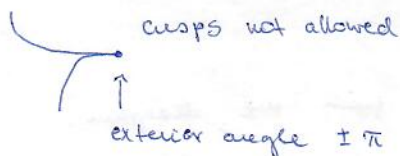 cusps not allowed
exterior angle ± π